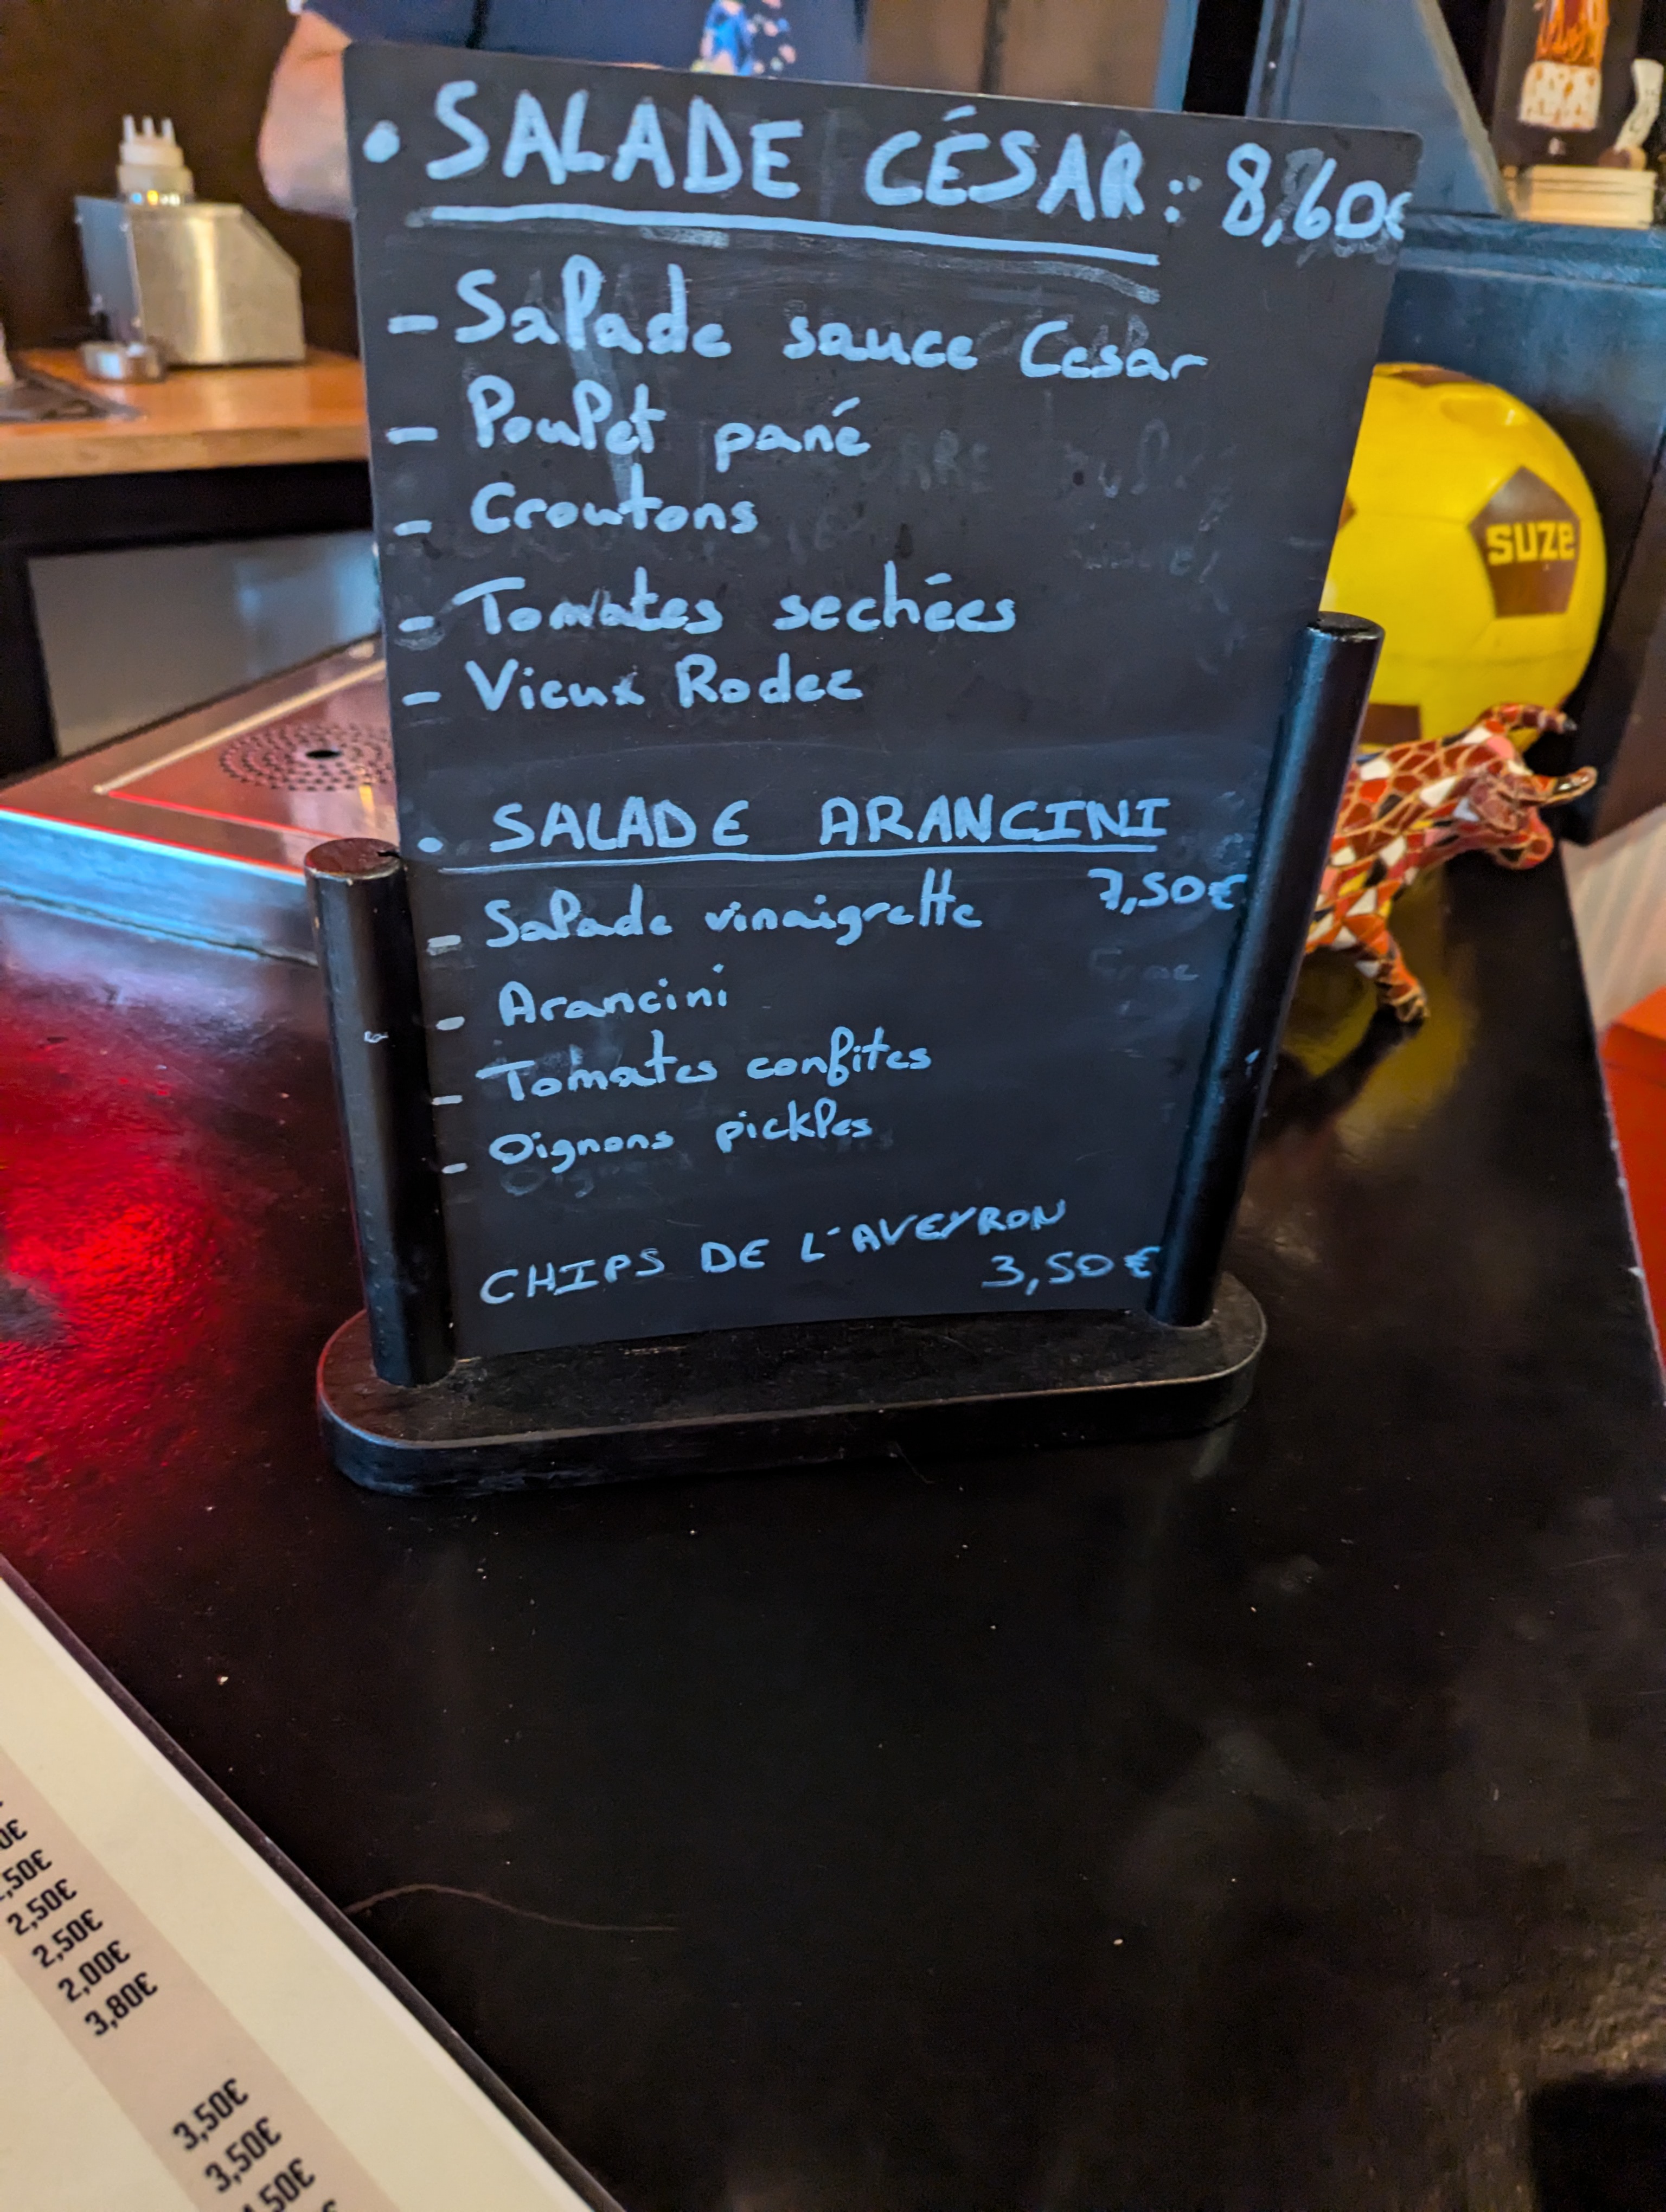 • SALADE CÉSAR : 8,60€
- Salade sauce Cesar
- Poulet pané
- Croutons
- Tomates sechées
- Vieux Rodez
• SALADE ARANCINI
7,50€
- Salade vinaigrette
- Arancini
- Tomates confites
- Oignons pickles
CHIPS DE L'AVEYRON
3,50€
SUZE
2,50€
2,50€
2,00€
3,80€
3,50€
3,50€